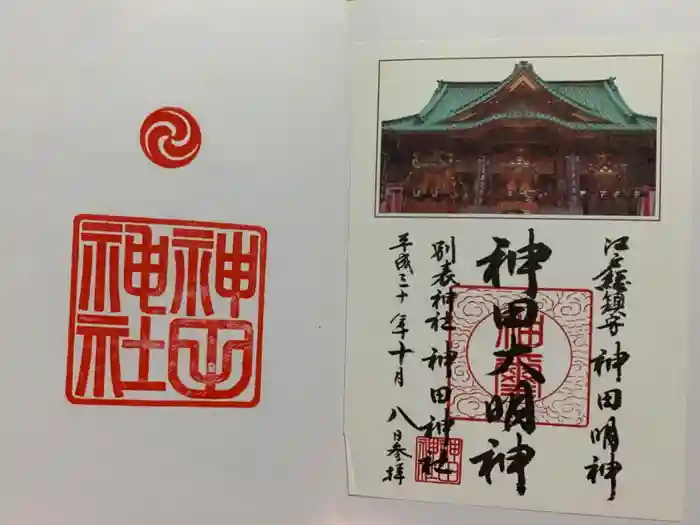 江戸総鎮守 神田明神
神田大明神
別表神社 神田神社
平成三十年十月八日参拝
神田
神社